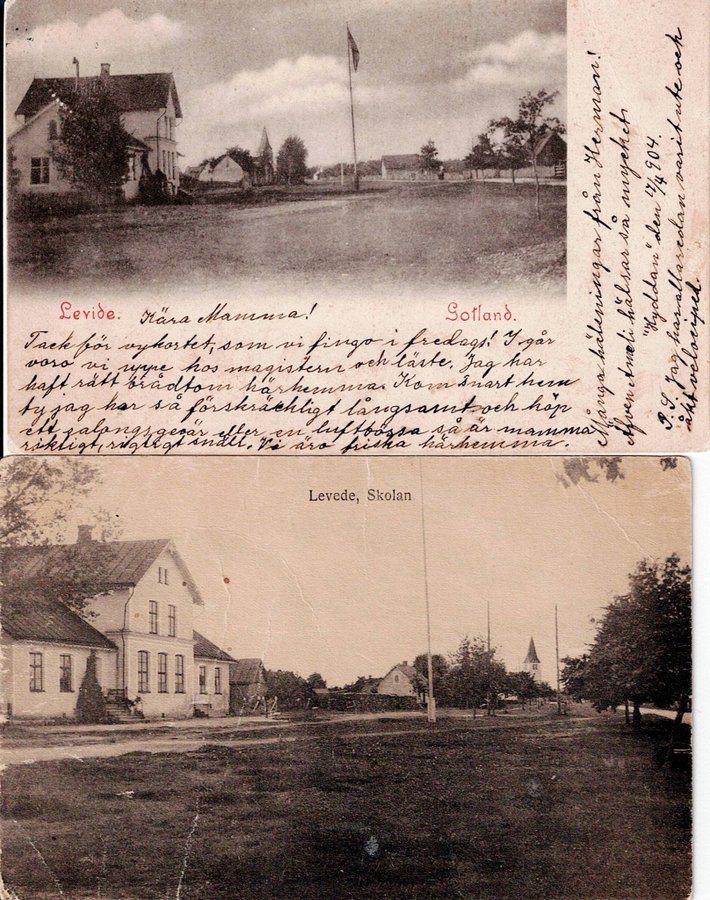 Levide. Kära Mamma! Gotland.
Tack för vykortet, som vi fingo i fredags! I går
voro vi uppe hos magistern och läste. Jag har
haft rätt brådtom härhemma. Kom snart hem
ty jag har så förskräckligt långsamt och köp
ett salongsgevär eller en luftbössa så är mamma
riktigt, rigtigt snäll. Vi äro friska härhemma.
Många hälsningar från Herman!
Afven Ameli hälsar så mycket.
"Hyddan" den 17/4 904.
P.S. Jag har allaredan varit ute och
åkt velociped.
Levede, Skolan